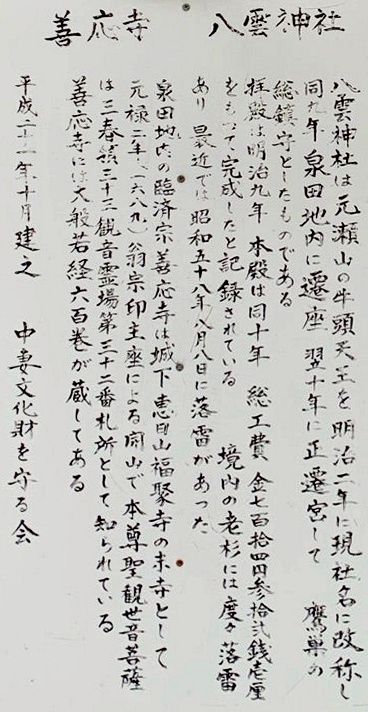 八雲神社　善応寺
八雲神社は元瀬山の牛頭天王を明治二年に現社名に改称し
同九年泉田地内に遷座　翌十年に正遷宮して　鷹巣の
総鎮守としたものである
拝殿は明治九年　本殿は同十年　総工費金七百拾四円参拾弐銭壱厘
をもって完成したと記録されている　境内の老杉には度々落雷
あり　最近では昭和五十八年八月八日に落雷があった
泉田地内の臨済宗善応寺は城下恵日山福聚寺の末寺として
元禄二年（一六八九）翁宗印主座による開山で本尊聖観世音菩薩
は三春領三十三観音霊場第三十二番札所として知られている
善応寺には大般若経六百巻が蔵してある
平成二十二年十月建之　中妻文化財を守る会